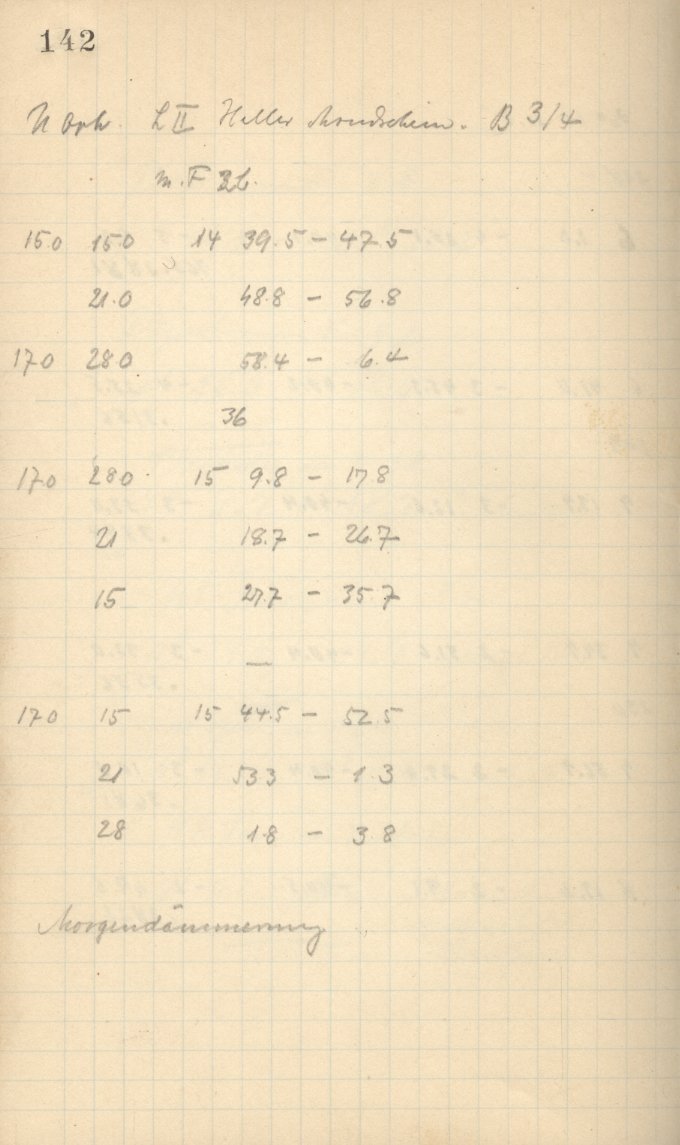 142
U Oph. L II Heller Mondschein. B 3/4
m. F
150 150 14 39.5 – 47.5
21.0 48.8 – 56.8
170 280 58.4 – 6.4
36
170 280 15 9.8 – 17.8
21 18.7 – 26.7
15 27.7 – 35.7
—
170 15 15 44.5 – 52.5
21 533 – 1.3
28 1.8 – 3.8
Morgendämmerung